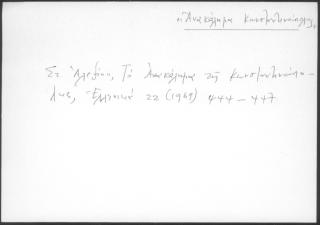 Ἀνακάλημα Κωνσταντινόπολης
Στ. Ἀλεξίου, Τὸ Ἀνακάλημα τῆς Κωνσταντινόπο-
λης, Ἑλληνικά 22 (1969) 444-447